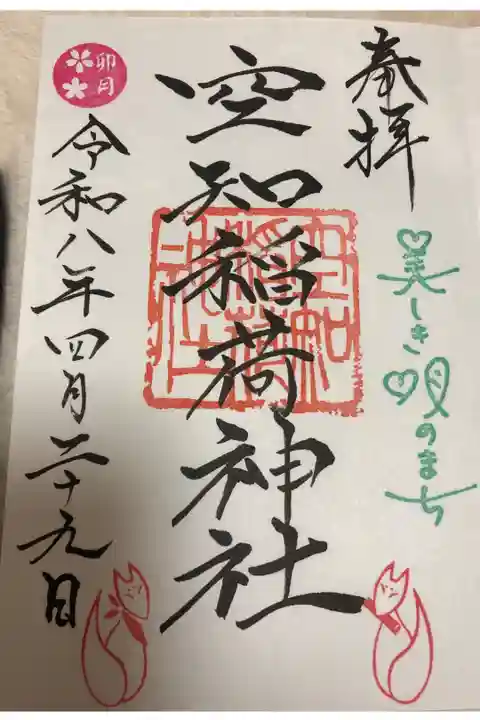 奉拝
美しき唄のまち
空知稲荷神社
空知
稲荷
神社
卯月
令和八年四月二十九日